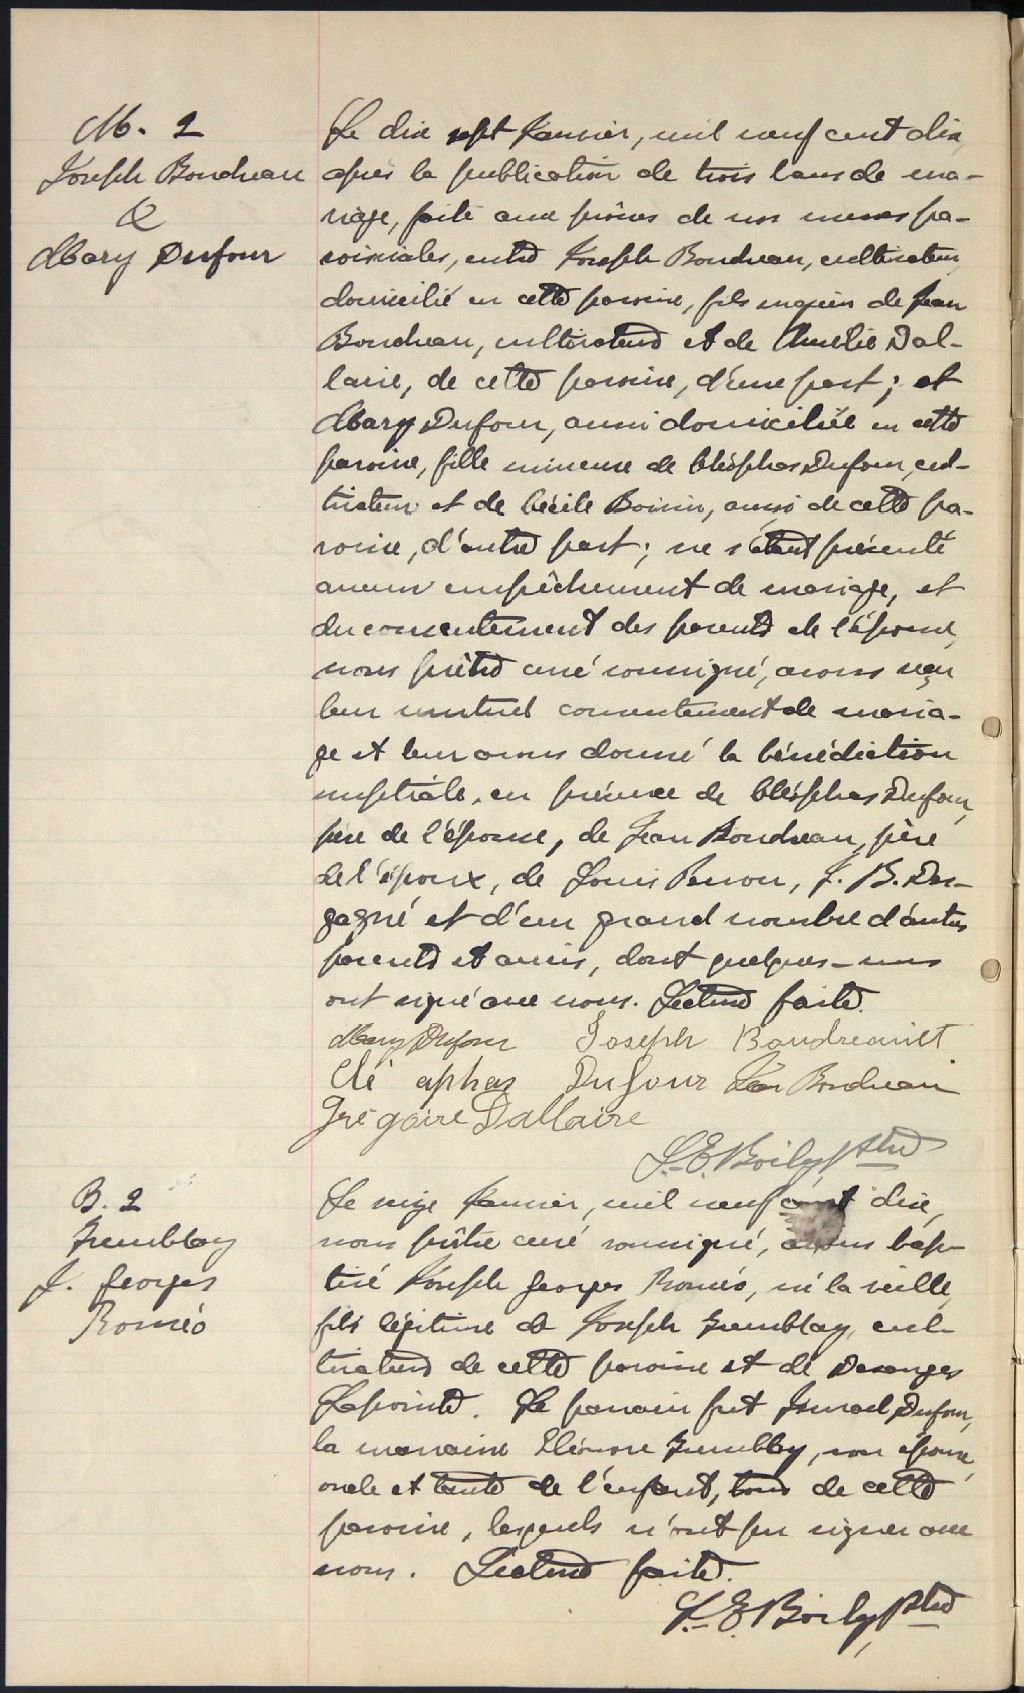 M. 2
Joseph Boudreau
&
Mary Dufour
Le dix sept Janvier, mil neuf cent dix,
après la publication de trois bans de ma-
riage, faite aux prônes de nos messes pa-
roissiales, entre Joseph Boudreau, cultivateur,
domicilié en cette paroisse, fils majeur de Jean
Boudreau, cultivateur et de Amélie Dal-
laire, de cette paroisse, d'une part; et
Mary Dufour, aussi domiciliée en cette
paroisse, fille mineure de Cléophas Dufour, cul-
tivateur et de Cécile Boivin, aussi de cette pa-
roisse, d'autre part; ne s'étant présenté
aucun empêchement de mariage, et
du consentement des parents de l'épouse,
nous prêtre curé soussigné, avons reçu
leur mutuel consentement de maria-
ge et leur avons donné la bénédiction
nuptiale, en présence de Cléophas Dufour,
père de l'épouse, de Jean Boudreau, père
de l'époux, de Louis Perron, J. B. Des-
gagné et d'un grand nombre d'autres
parents et amis, dont quelques-uns
ont signé avec nous. Lecture faite.
Mary Dufour Joseph Boudreault
Clé ophas Dufour Jean Boudreau
Grégoire Dallaire
L. E. Boily Ptre
B. 2
Tremblay
J. Georges
Roméo
Le seize Janvier, mil neuf cent dix,
nous prêtre curé soussigné, avons bap-
tisé Joseph Georges Roméo, né la veille,
fils légitime de Joseph Tremblay, cul-
tivateur de cette paroisse et de Desanges
Lapointe. Le parrain fut Ismael Dufour,
la marraine Eléonore Tremblay, son épouse,
oncle et tante de l'enfant, tous de cette
paroisse, lesquels n'ont pu signer avec
nous. Lecture faite.
L. E. Boily, Ptre